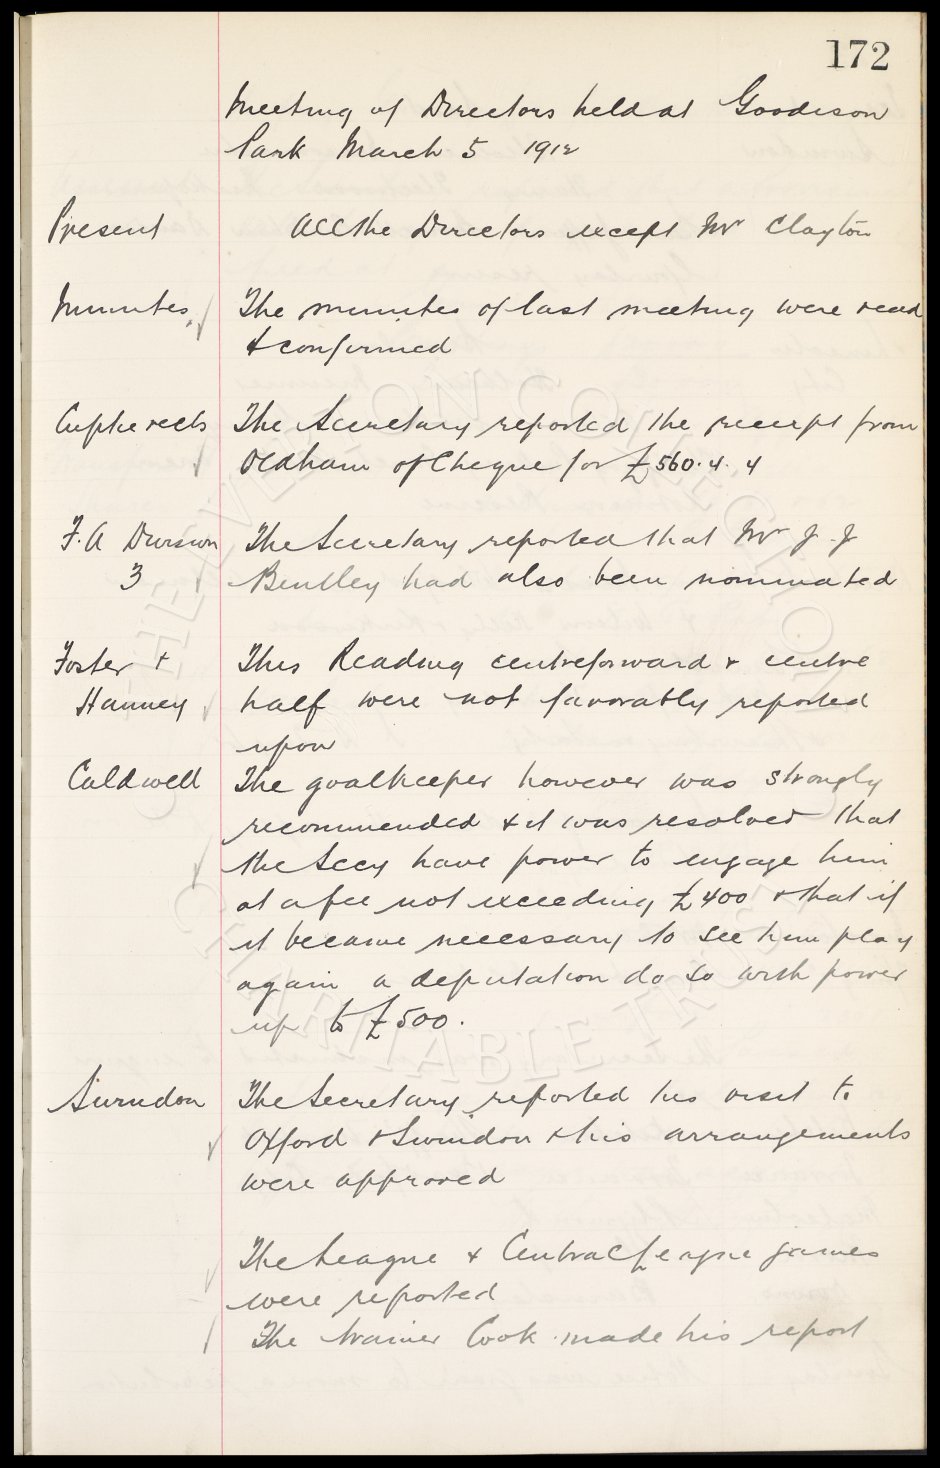 172
Meeting of Directors held at Goodison
Park March 5 1912
Present All the Directors except Mr Clayton
Minutes. The minutes of last meeting were read
& confirmed
Cuptie rects The Secretary reported the receipt from
Oldham of Cheque for £560.4.4
F.A Division The Secretary reported that Mr J. J
3 Bentley had also been nominated
Foster & This Reading centreforward & centre
Hanney half were not favorably reported
upon
Caldwell The goalkeeper however was strongly
recommended & it was resolved that
the Secy have power to engage him
at a fee not exceeding £400 & that if
it became necessary to see him play
again a deputation do so with power
up to £500.
Swindon The Secretary reported his visit to
Oxford & Swindon & his arrangements
were approved
The League & Central League games
were reported
The trainer Cook made his report
THE EVERTON COLLECTION
CHARITABLE TRUST